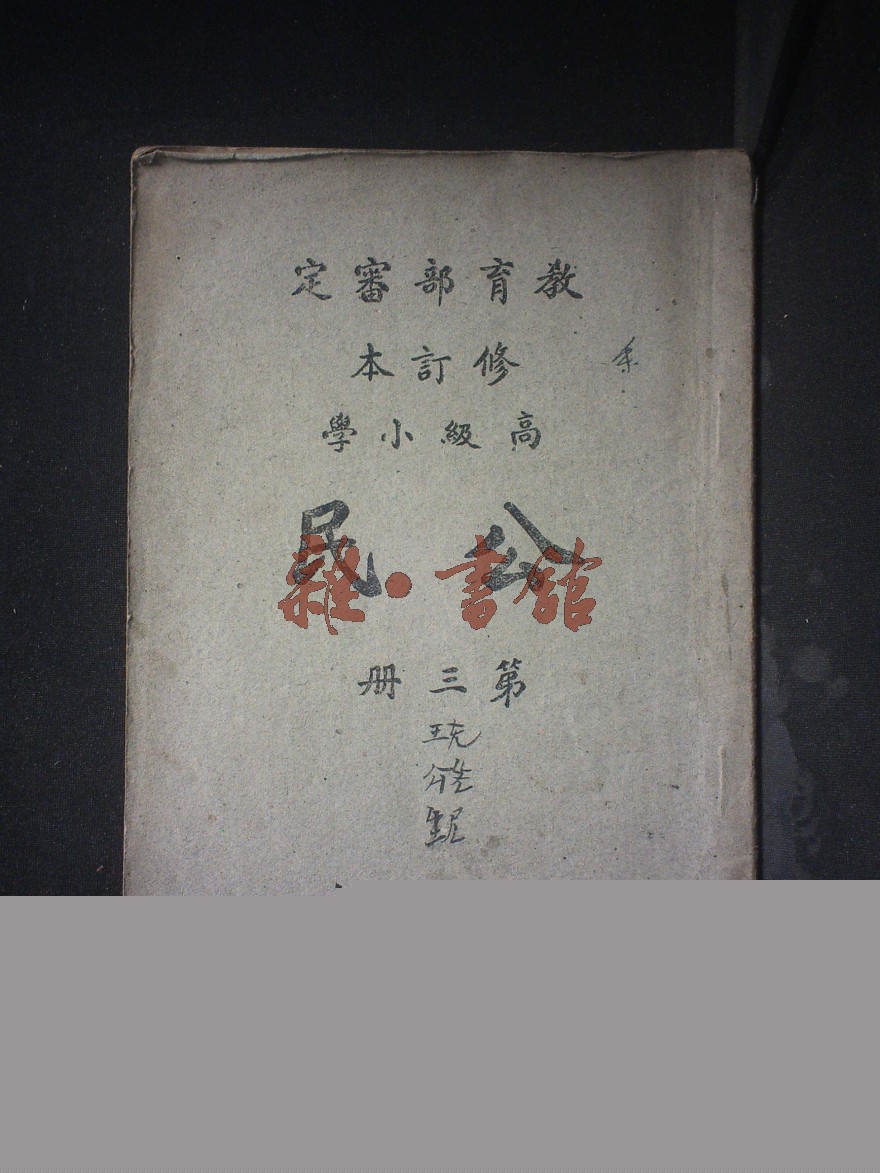 教育部審定
修訂本
高級小學
公民
雜·書館
第三册